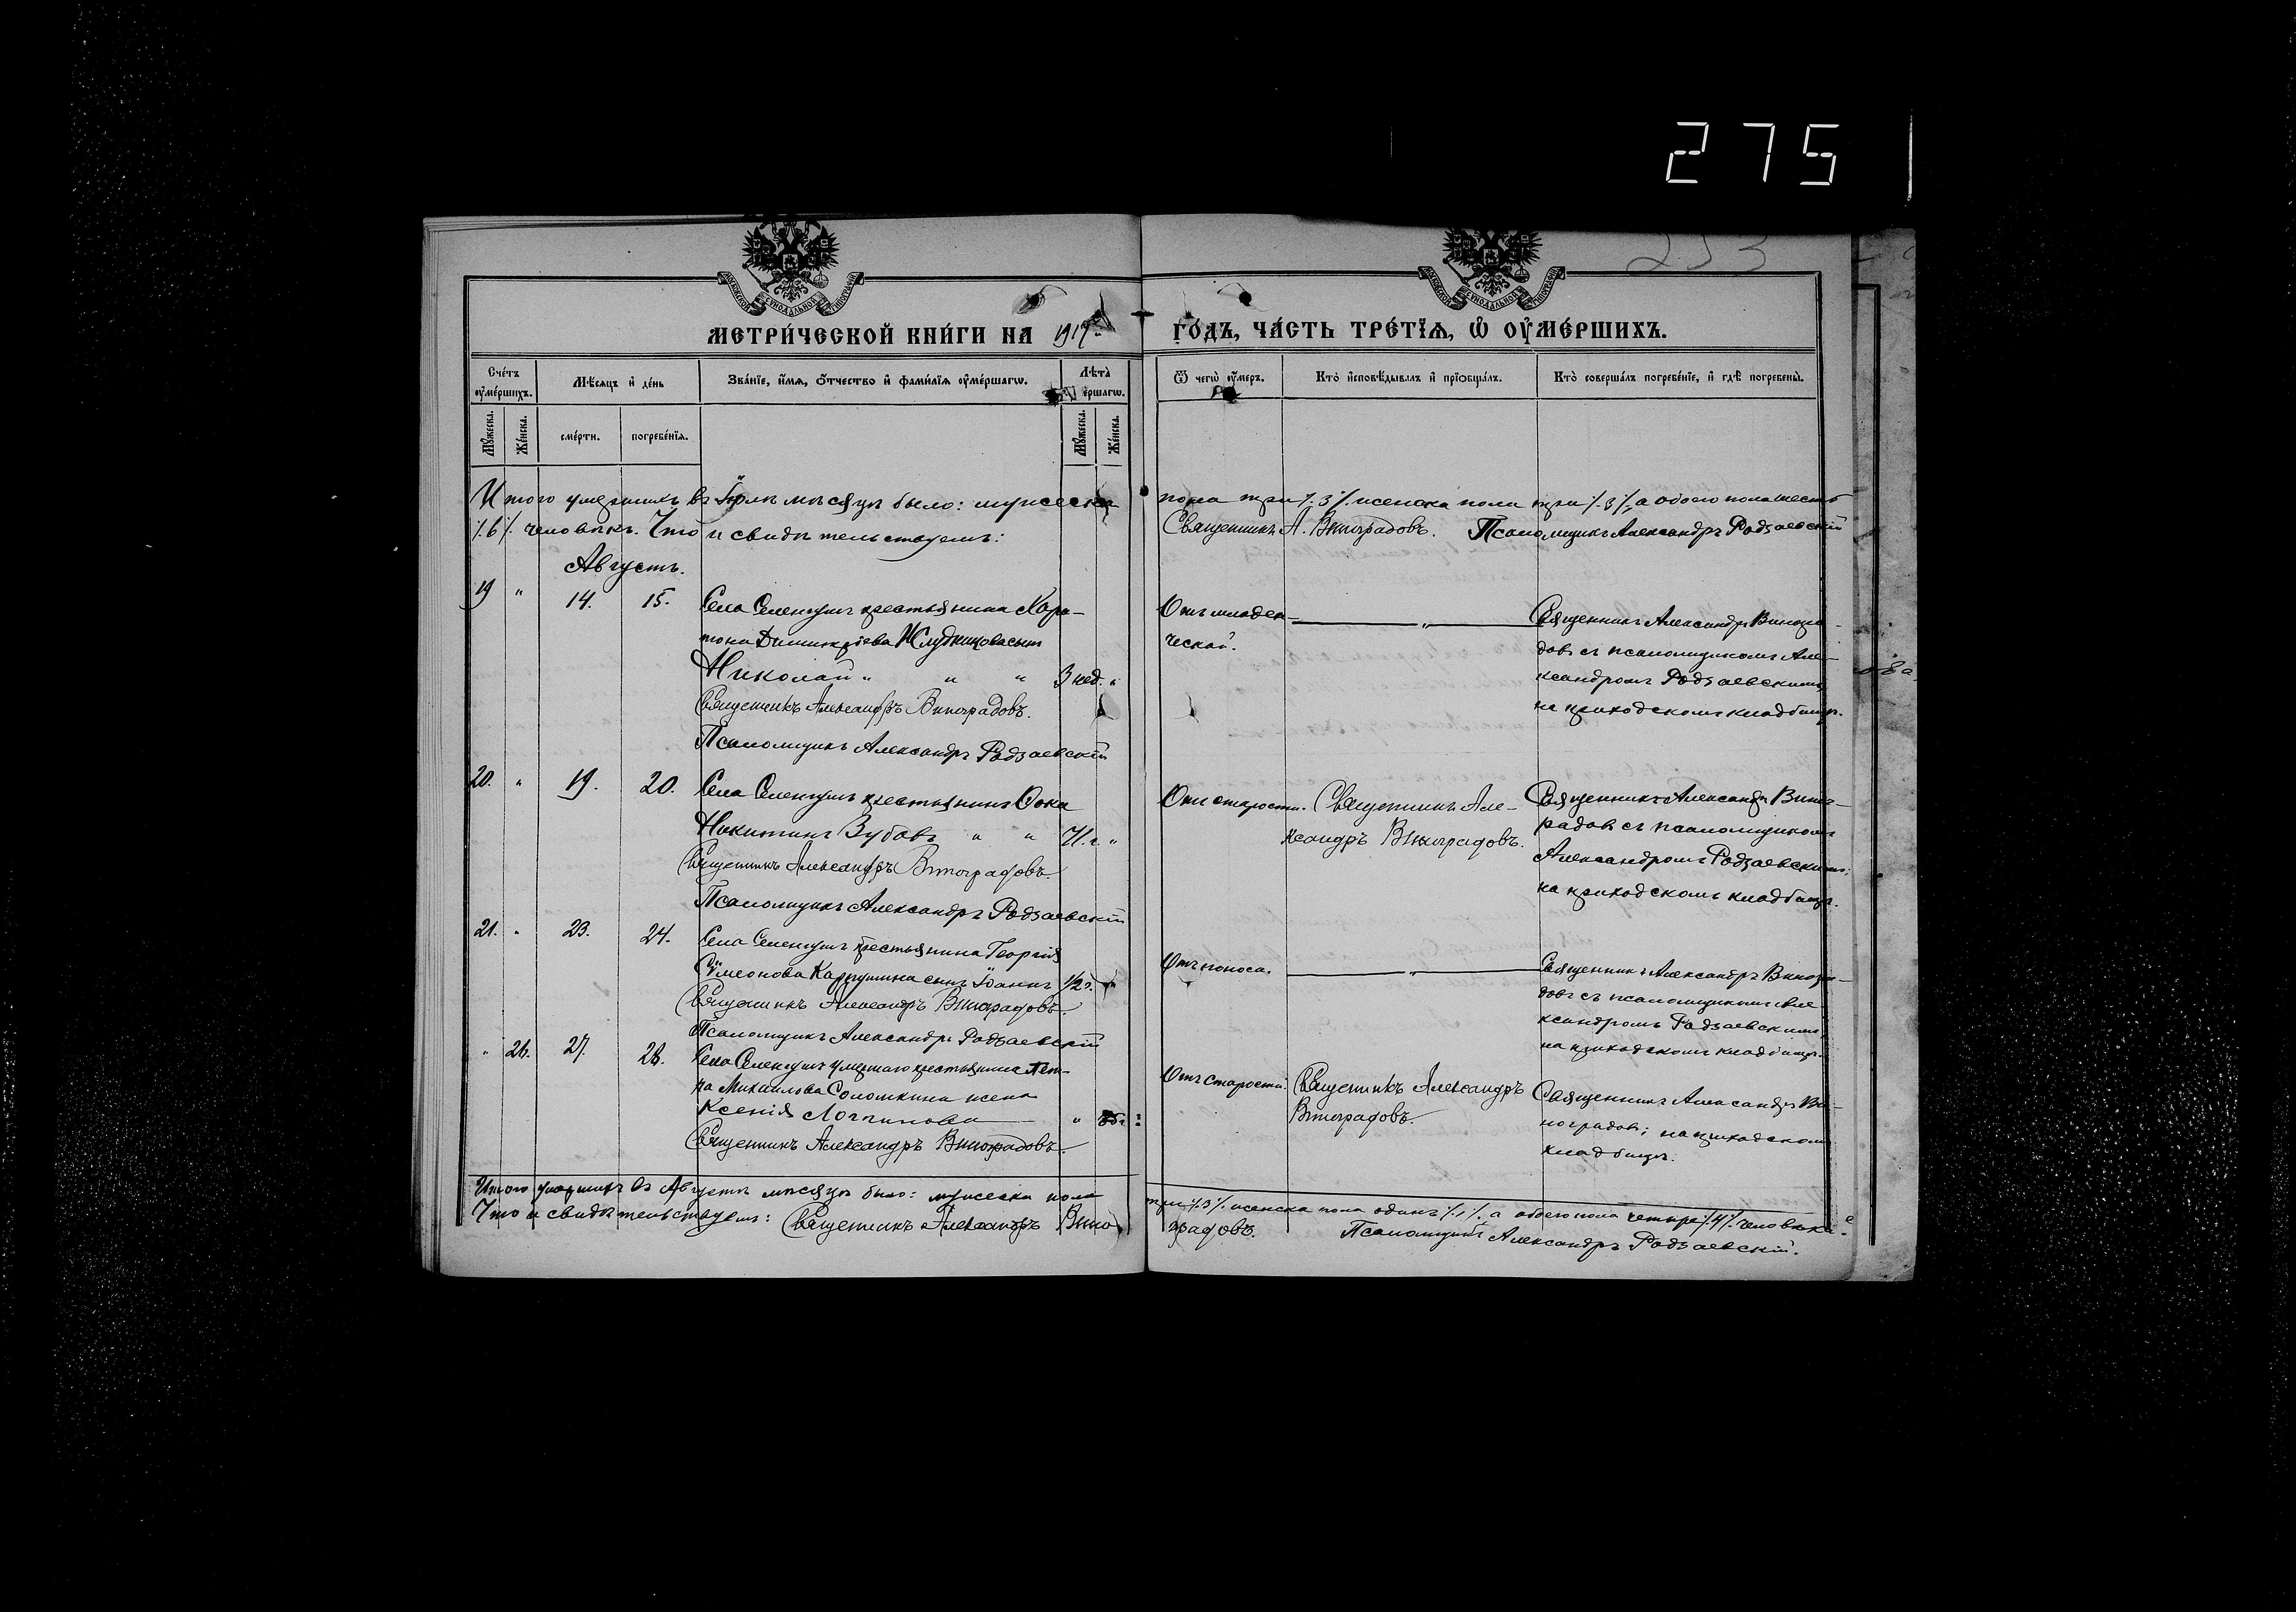 275
253
МОСКОВСКОЙ СѴНОДАЛЬНОЙ ТИПОГРАФІИ
МОСКОВСКОЙ СѴНОДАЛЬНОЙ ТИПОГРАФІИ
МЕТРИ́ЧЕСКОЙ КНИ́ГИ НА 1917
ГО́ДЪ, ЧА́СТЬ ТРЕ́ТЇѦ, Ѡ҆ ОУ҆МЕ́РШИХЪ.
Сче́тъ оу҆ме́ршихъ.
Мѣ́сѧцъ и҆ де́нь
Зва́нїе, и҆́мѧ, ѻ҆́тчество и҆ фами́лїѧ оу҆ме́ршагѡ.
Лѣ́та
е́ршагѡ.
Ѿ чегѡ̀ оу҆́меръ.
Кто̀ и҆сповѣ́дывалъ и҆ прїѻбща́лъ.
Кто̀ соверша́лъ погребе́нїе, и҆ гдѣ̀ погребены̀.
Мꙋ́жеска.
Же́нска.
сме́рти.
погребе́нїѧ.
Мꙋ́жеска.
Же́нска.
Итого умершихъ въ Іюлѣ мѣсяцѣ было: мужеска
пола три /.3/. женска пола три /.3/., а обоего пола шесть
/.6/. человѣкъ. Что и свидѣтельствуемъ:
Священникъ А. Виноградовъ. Псаломщикъ Александръ Родзаевскій
Августъ.
19 " 14. 15. Села крестьянина Хари-
тона Димитріева сынъ
Николай " " " 3 нед. "
Священникъ Александръ Виноградовъ.
Псаломщикъ Александръ Родзаевскій
Отъ младен-
ческой.
"
Священникъ Александръ Виногра-
довъ съ псаломщикомъ Але-
ксандромъ Родзаевскимъ
на приходскомъ кладбищѣ.
20. " 19. 20. Села крестьянинъ Ѳока
Никитинъ Зубовъ " " 71. г. "
Священникъ Александръ Виноградовъ.
Псаломщикъ Александръ Родзаевскій
Отъ старости.
Священникъ Але-
ксандръ Виноградовъ.
Священникъ Александръ Виног-
радовъ съ псаломщикомъ
Александромъ Родзаевскимъ;
на приходскомъ кладбищѣ.
21. " 23. 24. Села крестьянина Георгія
Сѵмеонова Карпушина сынъ Іоаннъ 1/2 г. "
Священникъ Александръ Виноградовъ.
Псаломщикъ Александръ Родзаевскій
Отъ поноса.
"
Священникъ Александръ Виногра-
довъ съ псаломщикомъ Але
ксандромъ Родзаевскимъ
на приходскомъ кладбищѣ.
" 27. Села умершаго крестьянина Пет-
ра Михаилова Соломкина жена
Ксенія "
Священникъ Александръ Виноградовъ.
Отъ старости.
Священникъ Александръ
Виноградовъ.
Священникъ Александръ Ви-
ноградовъ; на приходскомъ
кладбищѣ.
Итого умершихъ въ Августѣ мѣсяцѣ было: мужеска пола
три /.3/. женска пола одинъ /.1/. а обоего пола четыре /.4/. человѣка.
Что и свидѣтельствуемъ: Священникъ Александръ Вино
градовъ. Псаломщикъ Александръ Родзаевскій.